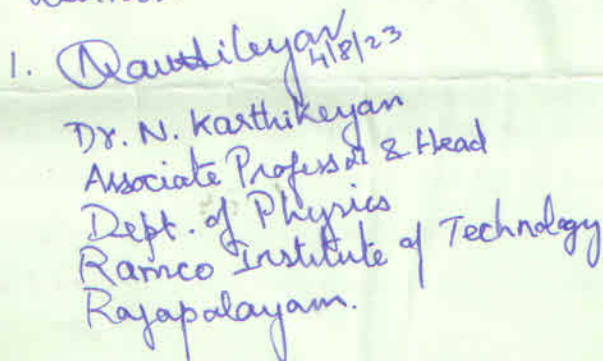 1. Karthikeyan 4/8/23
Dr. N. Karthikeyan
Associate Professor & Head
Dept. of Physics
Ramco Institute of Technology
Rajapalayam.